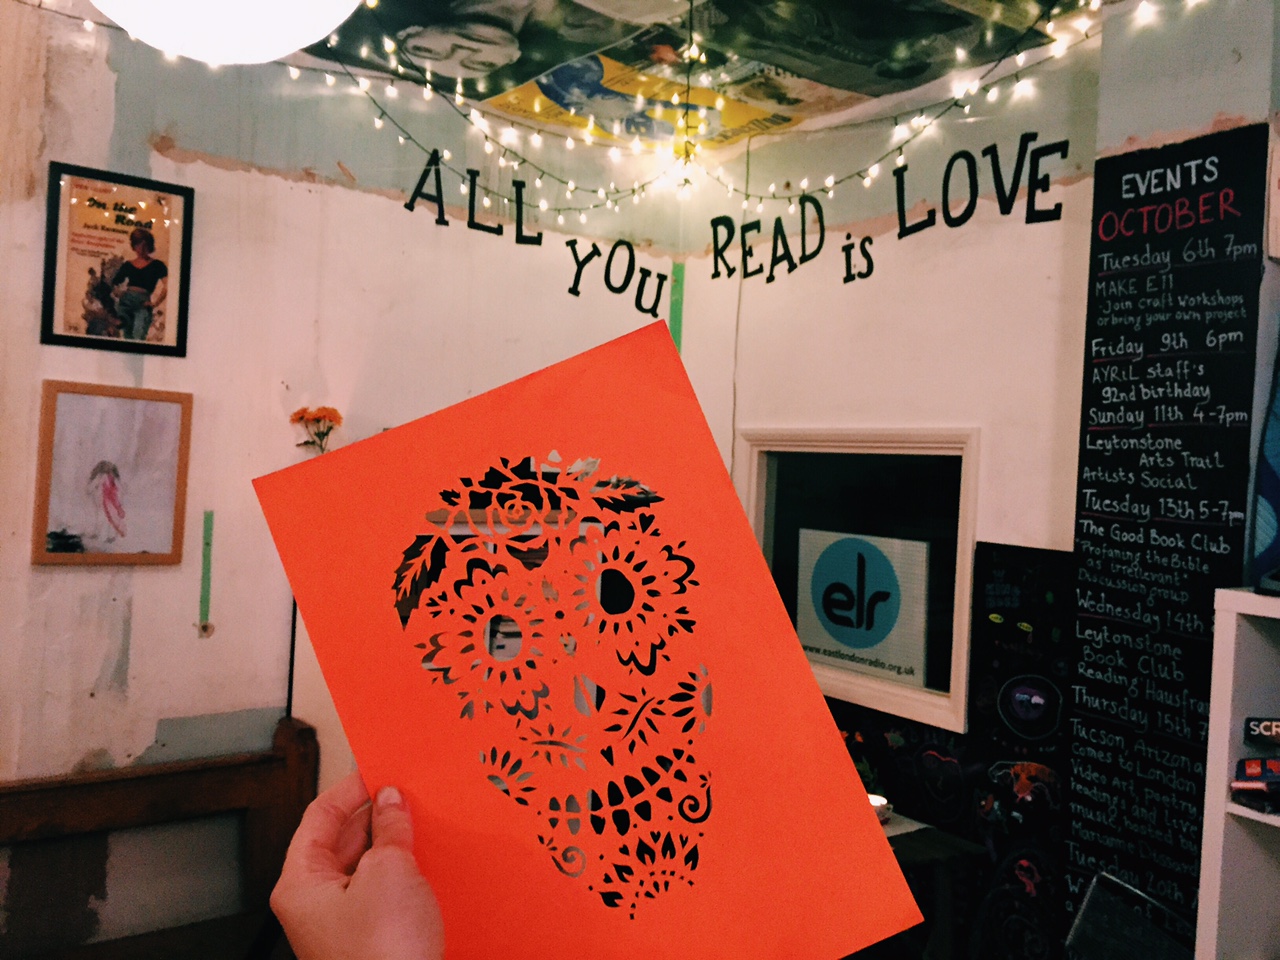 On the
Road
Jack Kerouac
ALL YOU READ is LOVE
elr
www.eastlondonradio.org.uk
EVENTS
OCTOBER
Tuesday 6th 7pm
MAKE E11
-Join craft workshops
or bring your own project
Friday 9th 6pm
AYRiL staff's
92nd birthday
Sunday 11th 4-7pm
Leytonstone
Arts Trail
Artists Social
Tuesday 13th 5-7pm
The Good Book Club
"Profaning the Bible
as irrelevant"
Discussion group
Wednesday 14th
Leytonstone
Book Club
Reading Hausfrau
Thursday 15th
Tucson, Arizona
comes to London
Video Art, poetry
readings and live
music hosted by
Tuesday 20th
SCR